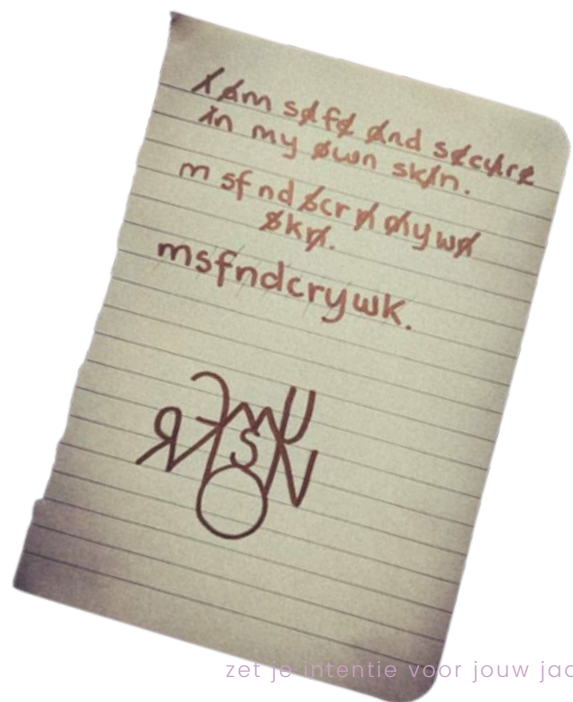 I am safe and secure
in my own skin.
m sf nd scr n mywn
skn.
msfndcrywk.
zet je intentie voor jouw jac